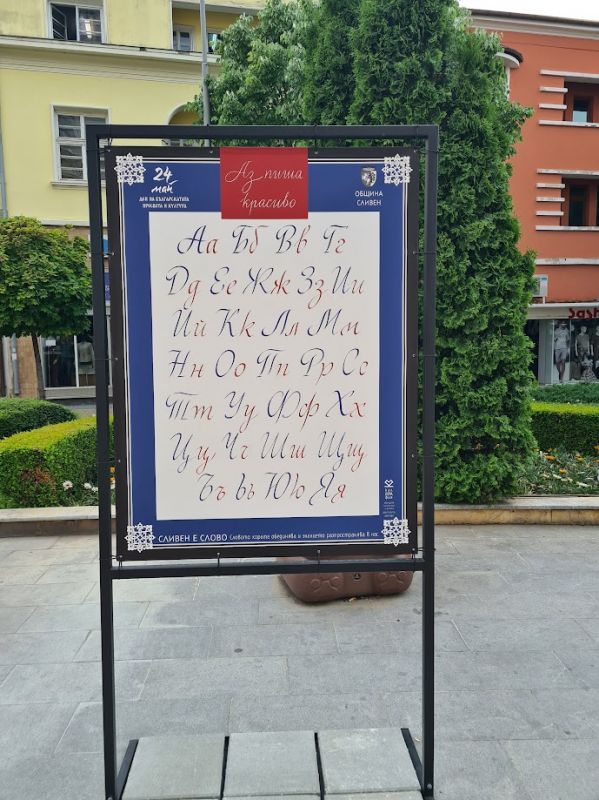 Аз пиша
красиво
24
май
ДЕН НА БЪЛГАРСКАТА
ПРОСВЕТА И КУЛТУРА
ОБЩИНА
СЛИВЕН
Аа Бб Вв Гг
Дд Ее Жж Зз Ии
Йй Кк Лл Мм
Нн Оо Пп Рр Сс
Тт Уу Фф Хх
Цц Чч Шш Щщ
Ъъ ьь Юю Яя
СЛИВЕН Е СЛОВО Словото